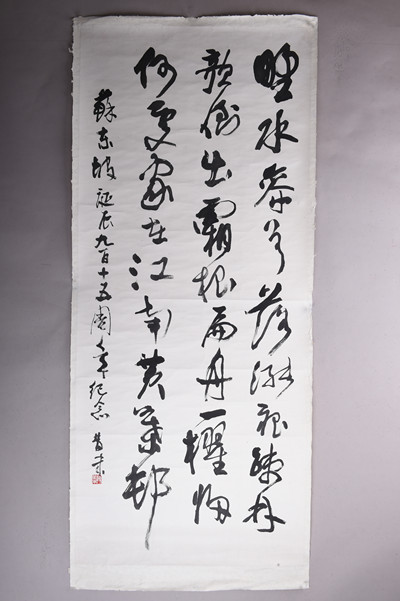 野水參差落漲痕疎林
欹倒出霜根扁舟一櫂歸
何處家在江南黄葉邨
蘇東坡誕辰九百十五周年紀念